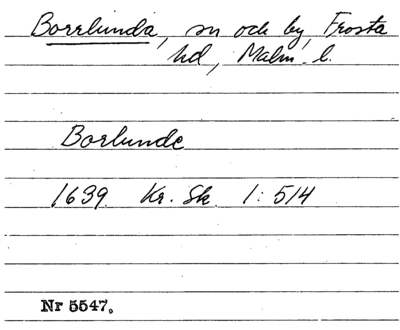 Borrlunda, sn och by, Frosta
hd, Malm. l.
Borlunde
1639 Kr. Sk. 1:514
Nr 5547.